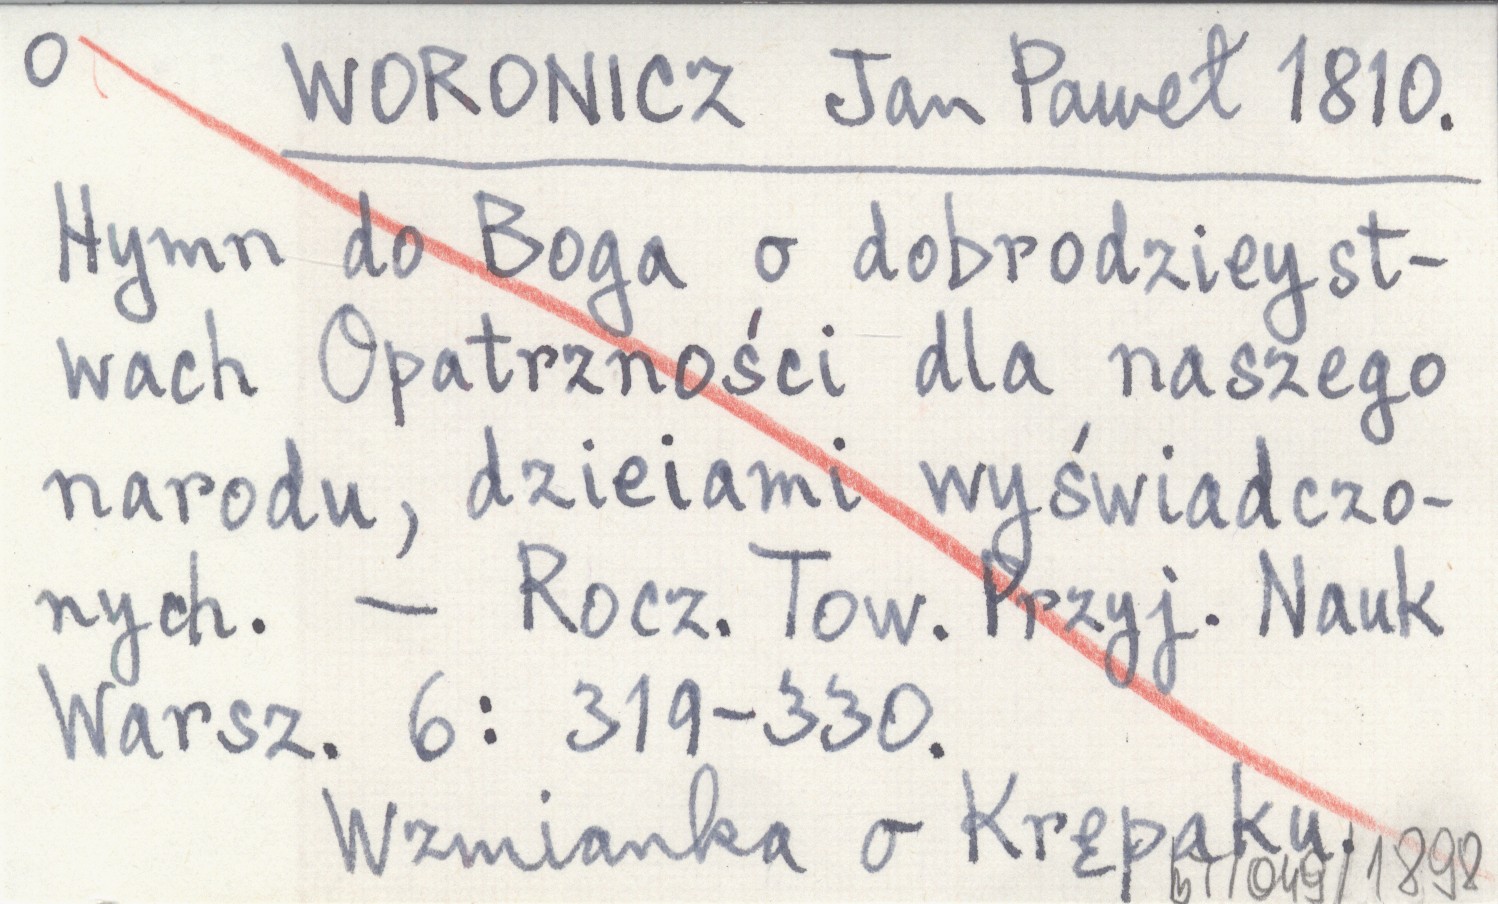 O WORONICZ Jan Paweł 1810.
Hymn do Boga o dobrodzieyst-
wach Opatrzności dla naszego
narodu, dzieiami wyświadczo-
nych. — Rocz. Tow. Przyj. Nauk
Warsz. 6: 319-330.
Wzmianka o Krępaku.
bT/049/1898